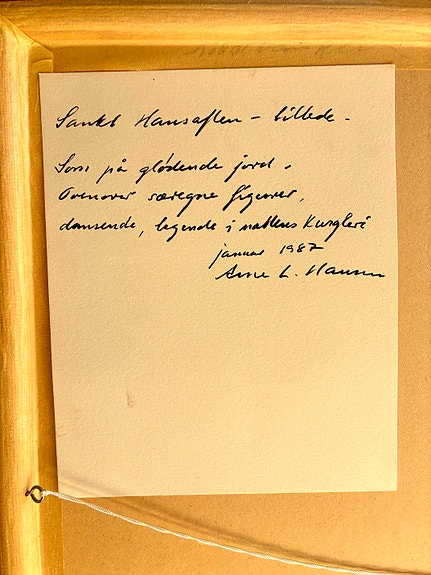 Sankt Hansaften - billede -
Som på glødende jord,
Ovenover særegne figurer,
dansende, legende i nattens
januar 1987
Arne L. Hansen